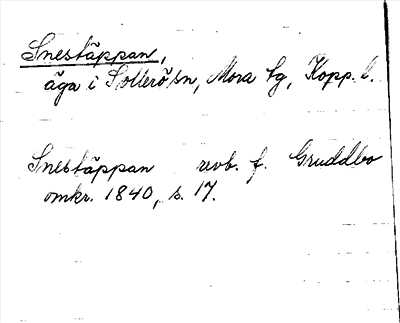 Snestäppan,
äga i Sollerö sn, Mora tg, Kopp. l.
Snestäppan revb. f. Gruddbo
omkr. 1840, s. 17.